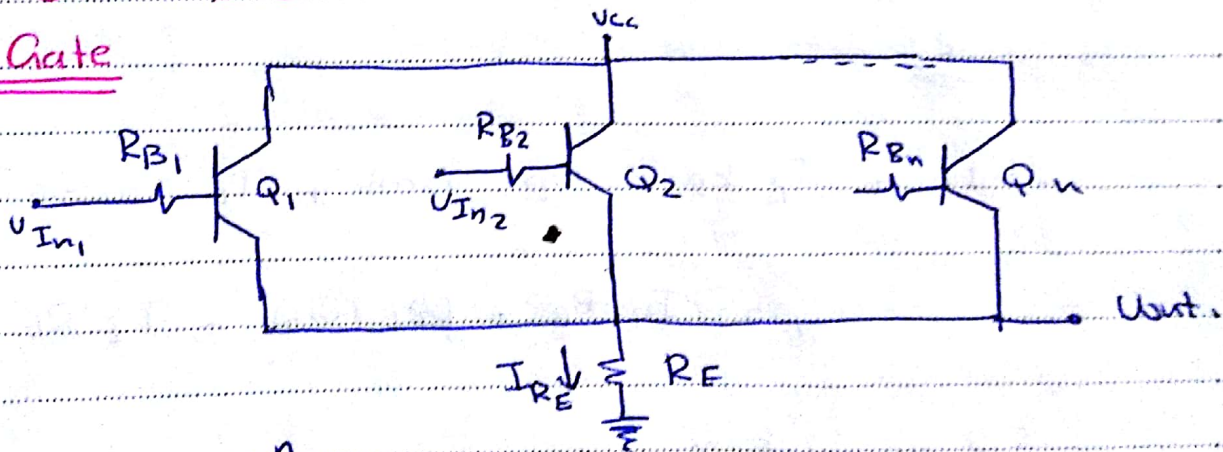 Vcc
Gate
R_B1
Q1
V_In1
R_B2
Q2
V_In2
R_Bn
Q n
Vout.
I_RE
R_E
n